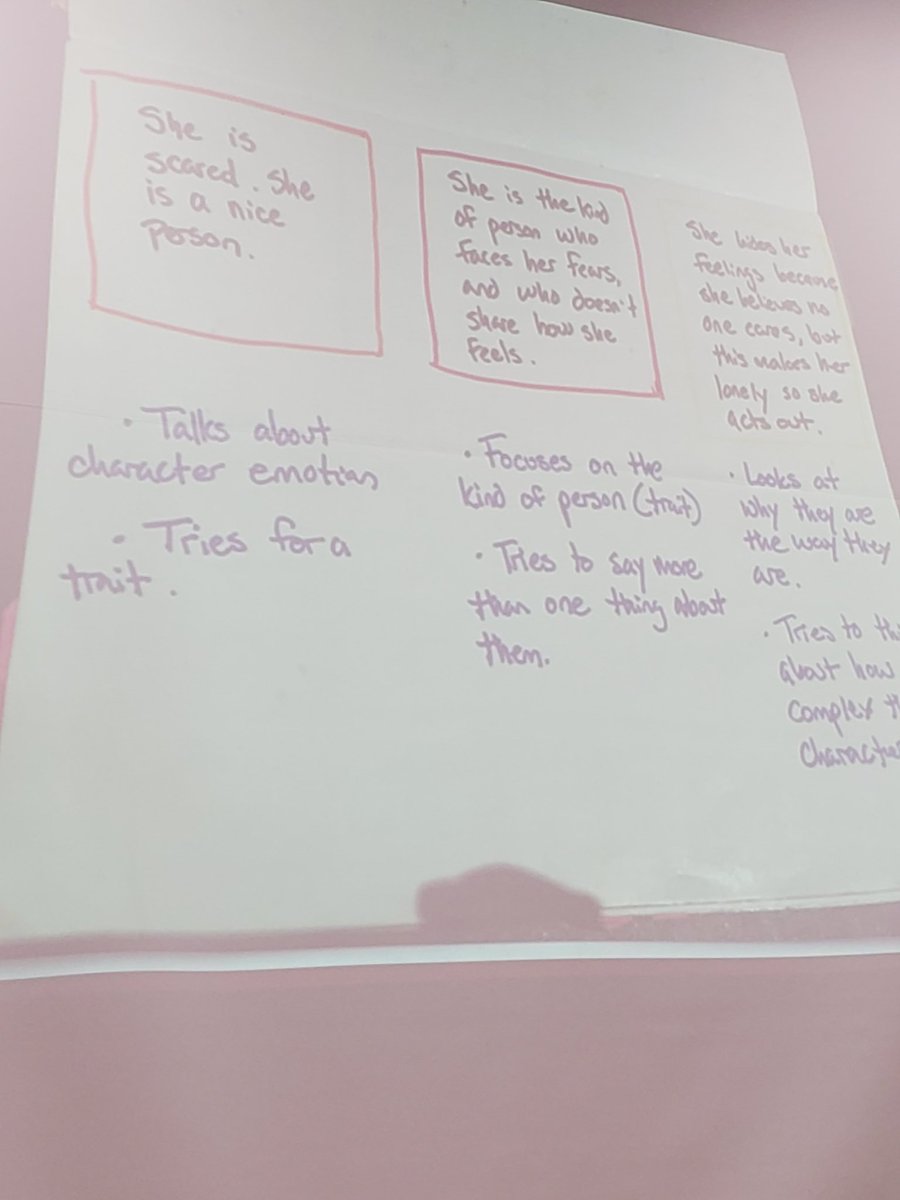 She is
scared. She
is a nice
Person.
• Talks about
character emotion
• Tries for a
trait.
She is the kind
of person who
faces her fears,
and who doesn't
share how she
feels.
• Focuses on the
kind of person (trait)
• Tries to say more
than one thing about
them.
She hides her
feelings because
she believes no
one cares, but
this makes her
lonely so she
acts out.
• Looks at
why they are
the way they
are.
• Tries to
about how
complex